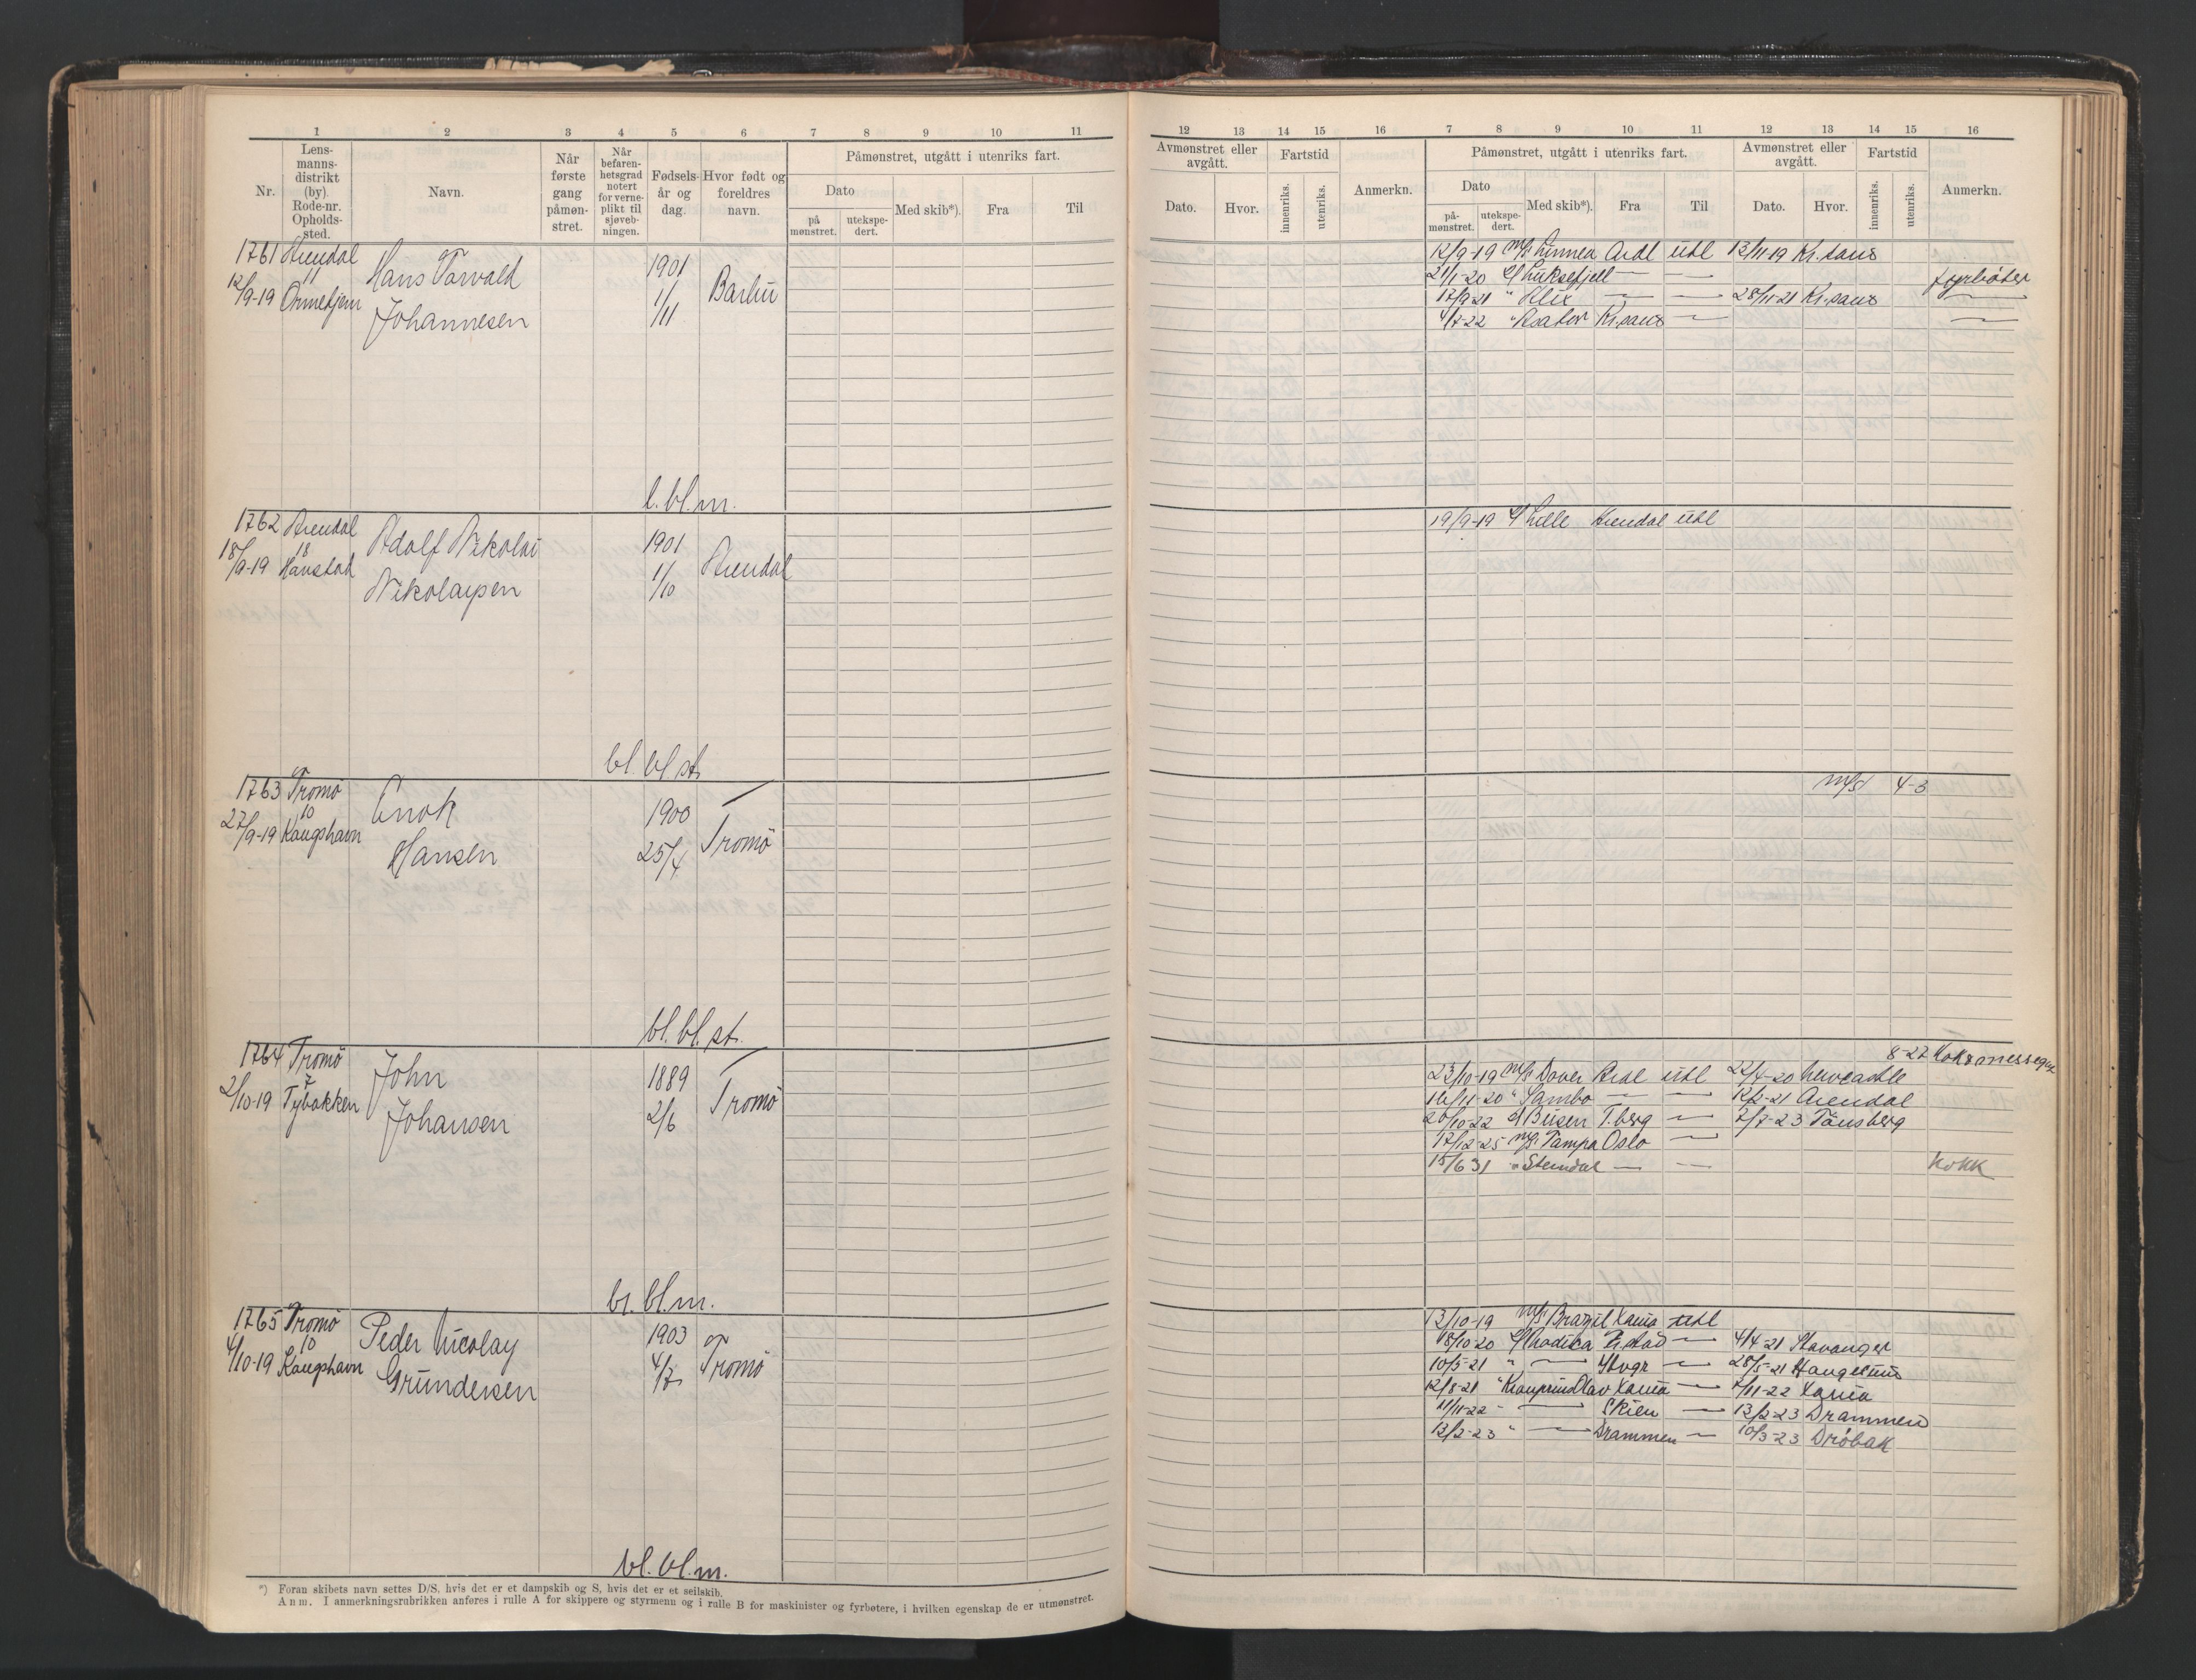 1 2 3 4 5 6 7 8 9 10 11
Nr.
Lens-
manns-
distrikt
(by).
Rode-nr.
Opholds-
sted.
Navn.
Når
første
gang
påmøn-
stret.
Når
befaren-
hetsgrad
notert
for verne-
plikt til
sjøveb-
ningen.
Fødsels-
år og
dag.
Hvor født og
foreldres
navn.
Påmønstret, utgått i utenriks fart.
Dato
på
mønstret.
utekspe-
dert.
Med skib*).
Fra
Til
1761 Arendal
11
12/9-19
Hans Torvald
Johannesen
1901
1/11
Barbu
l. bl. m.
1762 Arendal
18
18/9-19 Havstad
Adolf Nikolai
Nikolaysen
1901
1/10
Arendal
bl. bl st.
1763 Tromö
10
27/9-19 Kaugshavn
Enok
Hansen
1900
25/4
Tromö
bl. bl. st.
1764 Tromö
7
2/10-19 Tybakken
John
Johansen
1889
2/6
Tromö
bl. bl. m.
1765 Tromö
10
4/10-19 Kaugshavn
Peder Nicolay
Gründersen
1903
4/7
Tromö
bl. bl. m.
*) Foran skibets navn settes D/S, hvis det er et dampskib og S, hvis det er et seilskib.
Anm. I anmerkningsrubrikken anføres i rulle A for skippere og styrmenn og i rulle B for maskinister og fyrbøtere, i hvilken egenskap de er utmønstret.
12 13 14 15 16 7 8 9 10 11 12 13 14 15 16
Avmønstret eller
avgått.
Fartstid
Dato.
Hvor.
innenriks.
utenriks.
Anmerkn.
Påmønstret, utgått i utenriks fart.
Dato
på-
mønstret.
utekspe-
dert.
Med skib*).
Fra
Til
Avmønstret eller
avgått.
Fartstid
Dato.
Hvor.
innenriks.
utenriks.
Anmerkn.
12/9-19 m/s Linnea Ardl utl 13/11-19 Kr.sans
21/1-20 Luksefjell — — fyrbøter
17/9-21 " — — 28/11-21 Kr.sans —
4/7-22 " Kr.sans — —
19/9-19 Lille Arendal utl
m/s 4-3
8-27
23/10-19 m/s Dover Ardl utl 22/4-20 Newcastle
16/11-20 " Sambo — — 12/2-21 Arendal
20/10-22 T.berg — 7/7-23 Tönsberg
17/12-25 m/s Tampa Oslo —
15/6 31 " Steindal — — Kokk
13/10-19 m/s Brazil Xania utl
18/10-20 — 4/4-21 Stavanger
10/5-21 " — Stvgr — 28/5-21 Haugesund
12/8-21 " Kronprins Olav Xania — 7/11-22 Xania
11/11-22 - — Skien — 13/2-23 Drammen
13/2-23 " — Drammen — 10/3-23 Dröbak